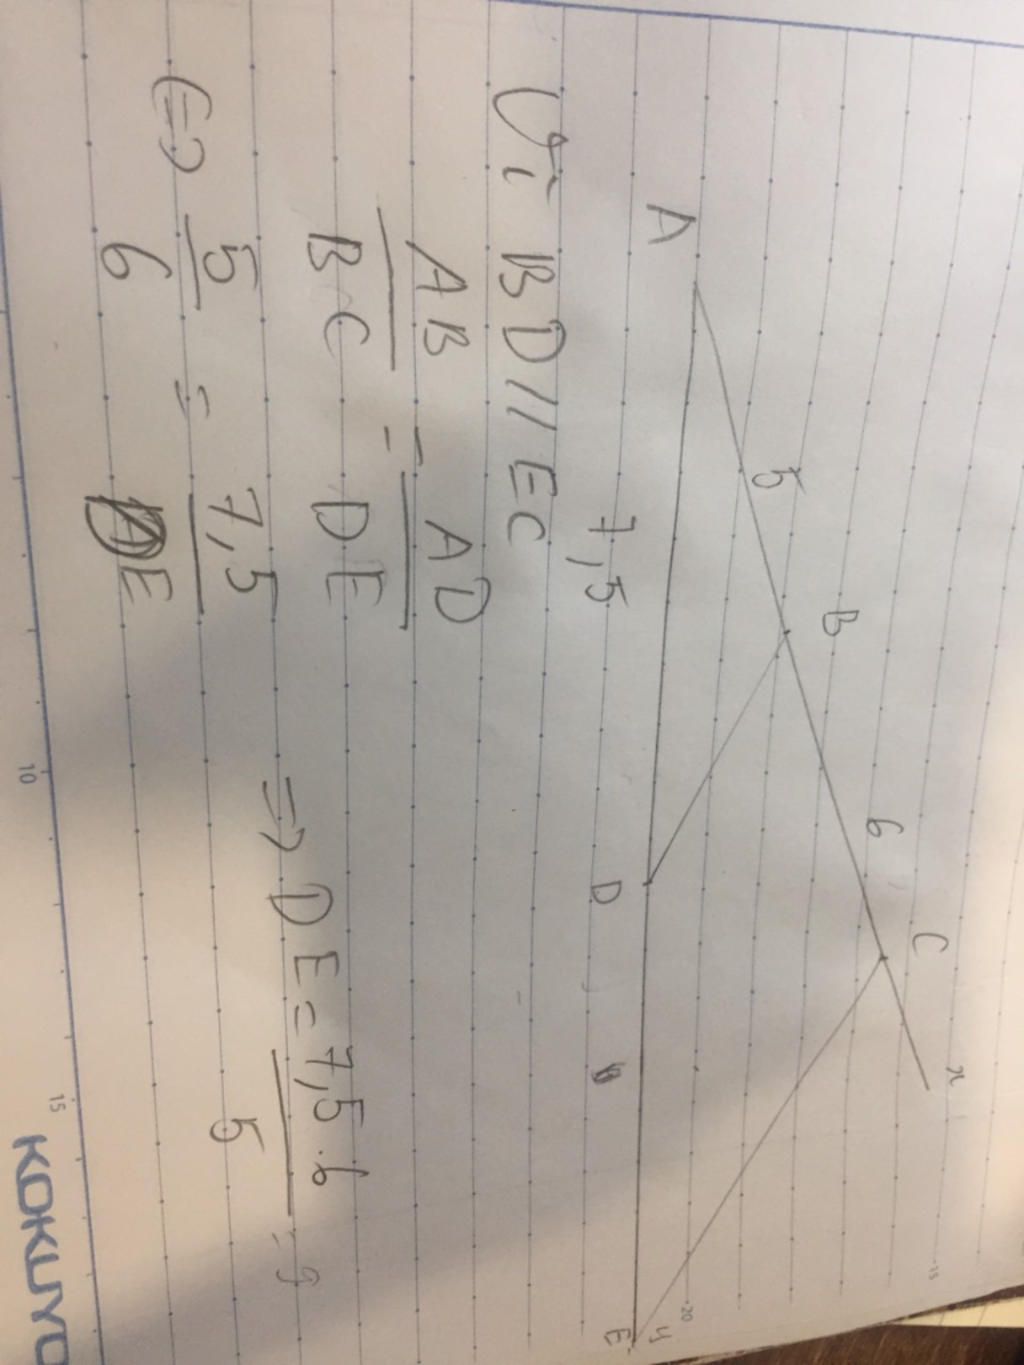 x
C
6
B
5
A
7,5
D
E
y
Vì BD // EC
AB/BC = AD/DE
<=> 5/6 = 7,5/DE
=> DE = 7,5.6/5 = 9
10
15
20
15
KOKUYO